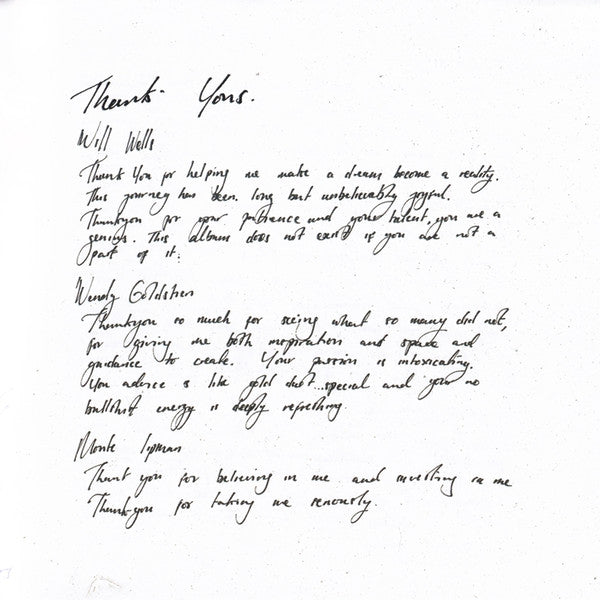 Thank Yous.
Will Wells
Thank You for helping me make a dream become a reality.
This journey has been long but unbelievably joyful.
Thankyou for your patience and your talent, you are a
genius. This album does not exist if you are not a
part of it.
Wendy Goldstein
Thankyou so much for seeing what so many did not,
for giving me both inspiration and space and
guidance to create. Your passion is intoxicating.
You advice is like gold dust...special and your no
bullshit energy is deeply refreshing.
Monte Lipman
Thank you for believing in me and investing in me
Thank-you for taking me seriously.